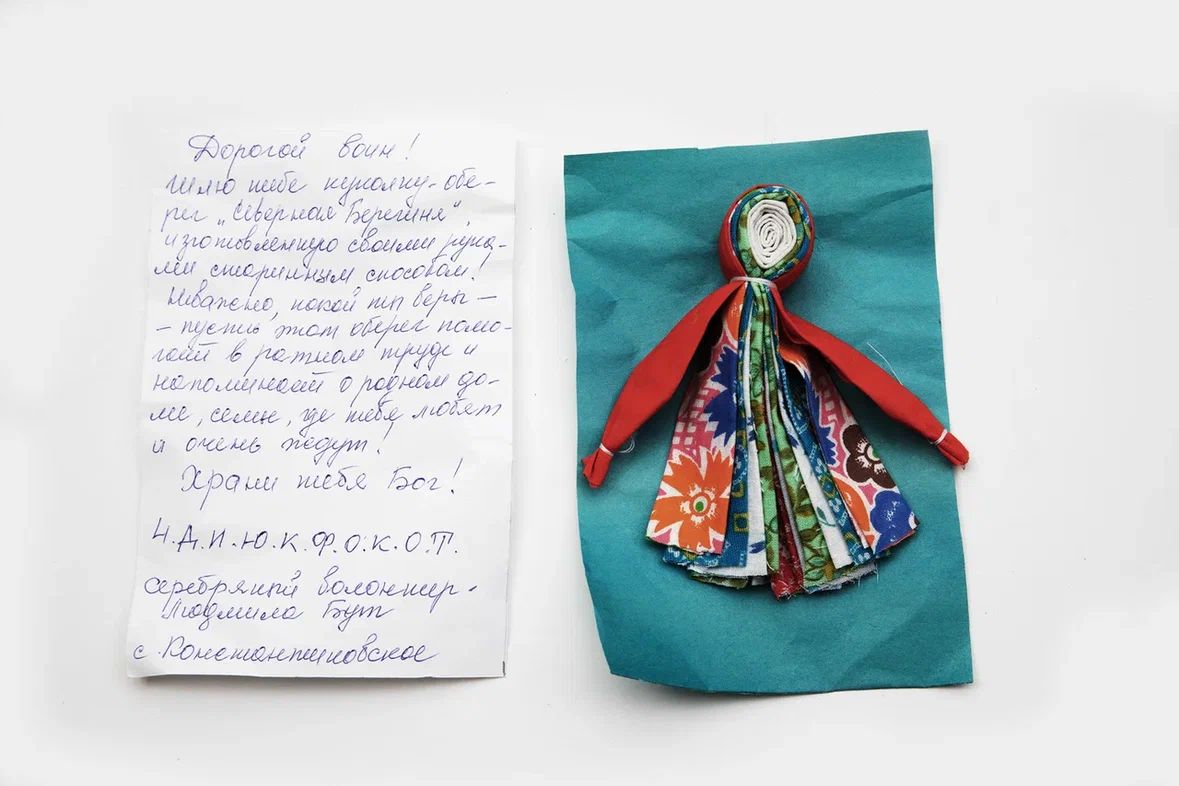 Дорогой воин!
Шлю тебе куколку-обе-
рег „Северная Берегиня",
изготовленную своими рука-
ми старинным способом!
Неважно, какой ты веры –
– пусть этот оберег помо-
гает в ратном труде и
напоминает о родном до-
ме, семье, где тебя любят
и очень ждут!
Храни тебя Бог!
Ч.Д.И.Ю.К.Ф.О.К.О.Т.
серебряный волонтер -
Людмила Бут
с. Константиновское